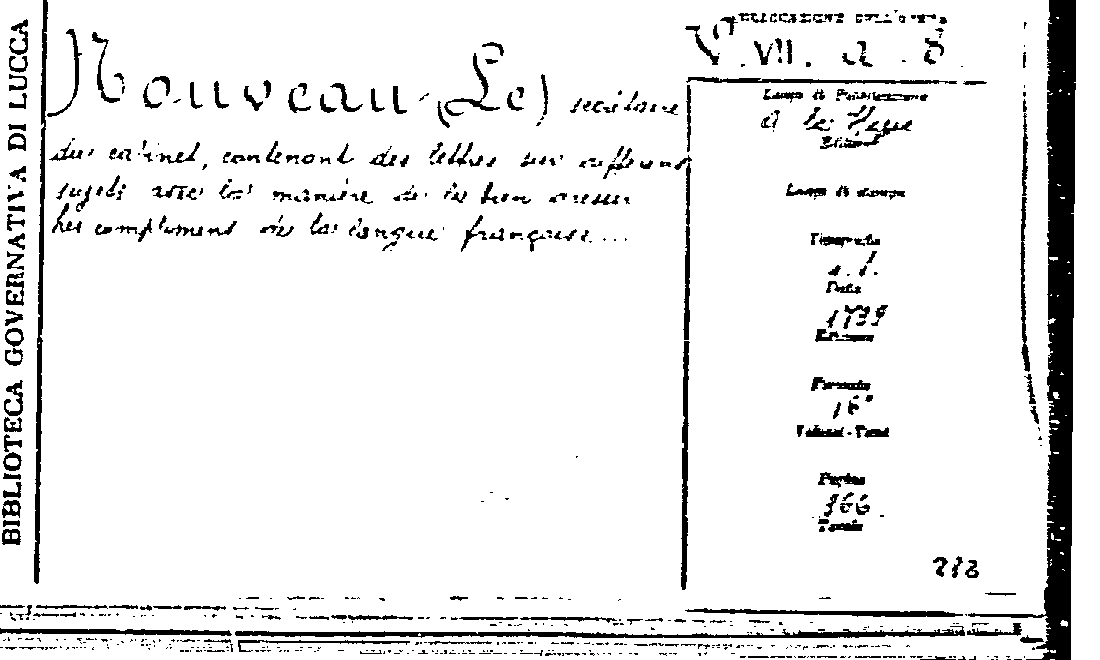 BIBLIOTECA GOVERNATIVA DI LUCCA
Nouveau (Le) secrétaire
du cabinet, contenant des lettres sur differens
sujets avec la manière de les bien dresser
les compliments de la langue française...
COLLOCAZIONE DELL'OPERA
V. VII. a. 8
Luogo di Pubblicazione
A la Haye
Editore
Luogo di stampa
Tipografia
s. t.
Data
1739
Edizione
Formato
16°
Volumi - Tomi
Pagine
366
Tavole
212